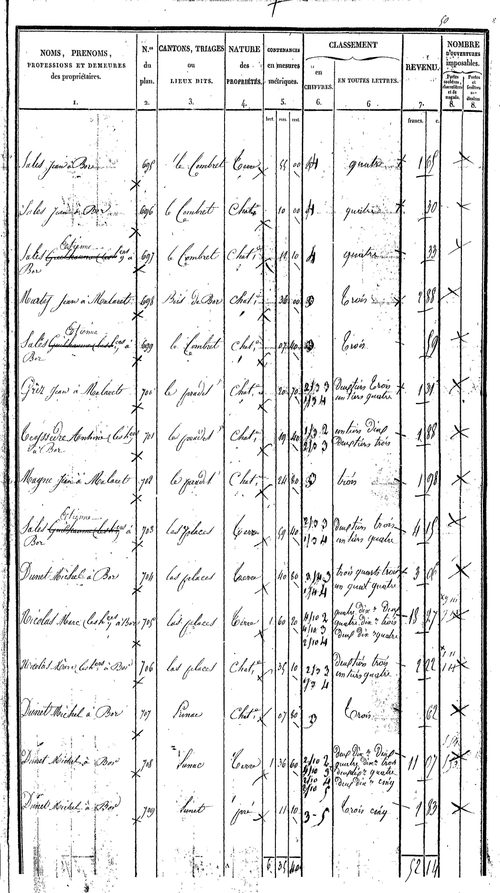 50
NOMS, PRENOMS,
PROFESSIONS ET DEMEURES
des propriétaires.
1.
N.os
du
plan.
2.
CANTONS, TRIAGES
ou
LIEUX DITS.
3.
NATURE
des
PROPRIÉTÉS.
4.
CONTENANCES
en mesures
métriques.
5.
CLASSEMENT
en
CHIFFRES.
6.
EN TOUTES LETTRES.
6
REVENU.
7.
NOMBRE
D'OUVERTURES
imposables.
8.
8.
francs. c.
Sales Jean à Bor 695 le Combret Terre 55 00 4 quatre 1 65
Sales Jean à Bor 696 le Combret Chat. 10 00 4 quatre 30
Etienne
Sales à 697 le Combret Chat. 11 10 4 quatre 33
Bor
Marty Jean à Malaret 698 Bois de Bor Chat. 36 00 3 Trois 2 88
Etienne
Sales à 699 le Combret Chat. 07 40 3 Trois 59
Bor
Jean à Malaret 700 le pradel Chat. 20 70 2/3 3 Deux tiers Trois 1 31
1/3 4 un tiers quatre
Teysseire Antoine 701 le pradel Chat. 19 40 1/3 2 un tiers Deux 1 88
à Bor 2/3 3 Deux tiers trois
Magne Jean à Malaret 702 le pradel Chat. 24 80 3 trois 1 98
Etienne
Sales à 703 las places Terre 59 40 2/3 3 Deux tiers trois 4 15
Bor 1/3 4 un tiers quatre
Dunet Michel à Bor 704 las places Terre 40 80 3/4 3 trois quarts trois 3 06
1/4 4 un quart quatre
Nicolas Marc à Bor 705 las places Terre 1 60 20 4/10 2 quatre Dix. Deux 18 27
4/10 3 quatre Dix. trois
2/10 4 Deux Dix. quatre
Nicolas Marc à Bor 706 las places Chat. 35 10 2/3 3 Deux tiers trois 2 22
1/3 4 un tiers quatre
Dunet Michel à Bor 707 Lunac Chat. 07 80 3 Trois 62
Dunet Michel à Bor 708 Lunac Terre 1 36 60 2/10 2 Deux Dix. Deux 11 07
4/10 3 quatre Dix. trois
2/10 4 Deux Dix. quatre
2/10 5 Deux Dix. cinq
Dunet Michel à Bor 709 Lunet pré 11 10 3-5 Trois cinq 1 83
6 35 40 52 14